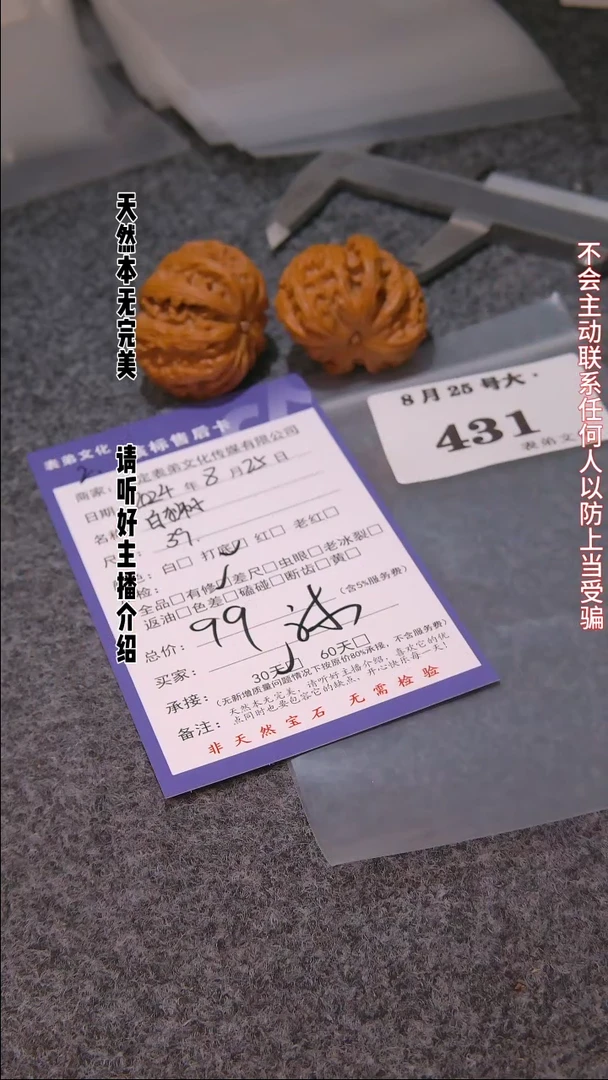 天然本无完美
请听好主播介绍
不会主动联系任何人以防上当受骗
8月25号大·
431
表弟文
表弟文化
标售后卡
商家：
定表弟文化传媒有限公司
日期
2024年8月25日
名称
尺
39.
色：白□ 打底□ 红□ 老红□
检：
全品□有修□差尺□虫眼□老冰裂□
返油□色差□磕碰□断齿□黄□
总价：
99
(含5%服务费)
买家：
30天□ 60天□
承接：(无新增质量问题情况下按原价80%承接，不含服务费)
备注：
天然本无完美，请听好主播介绍，喜欢它的优
点同时也要包容它的缺点，开心快乐每一天！
非天然宝石 无需检验